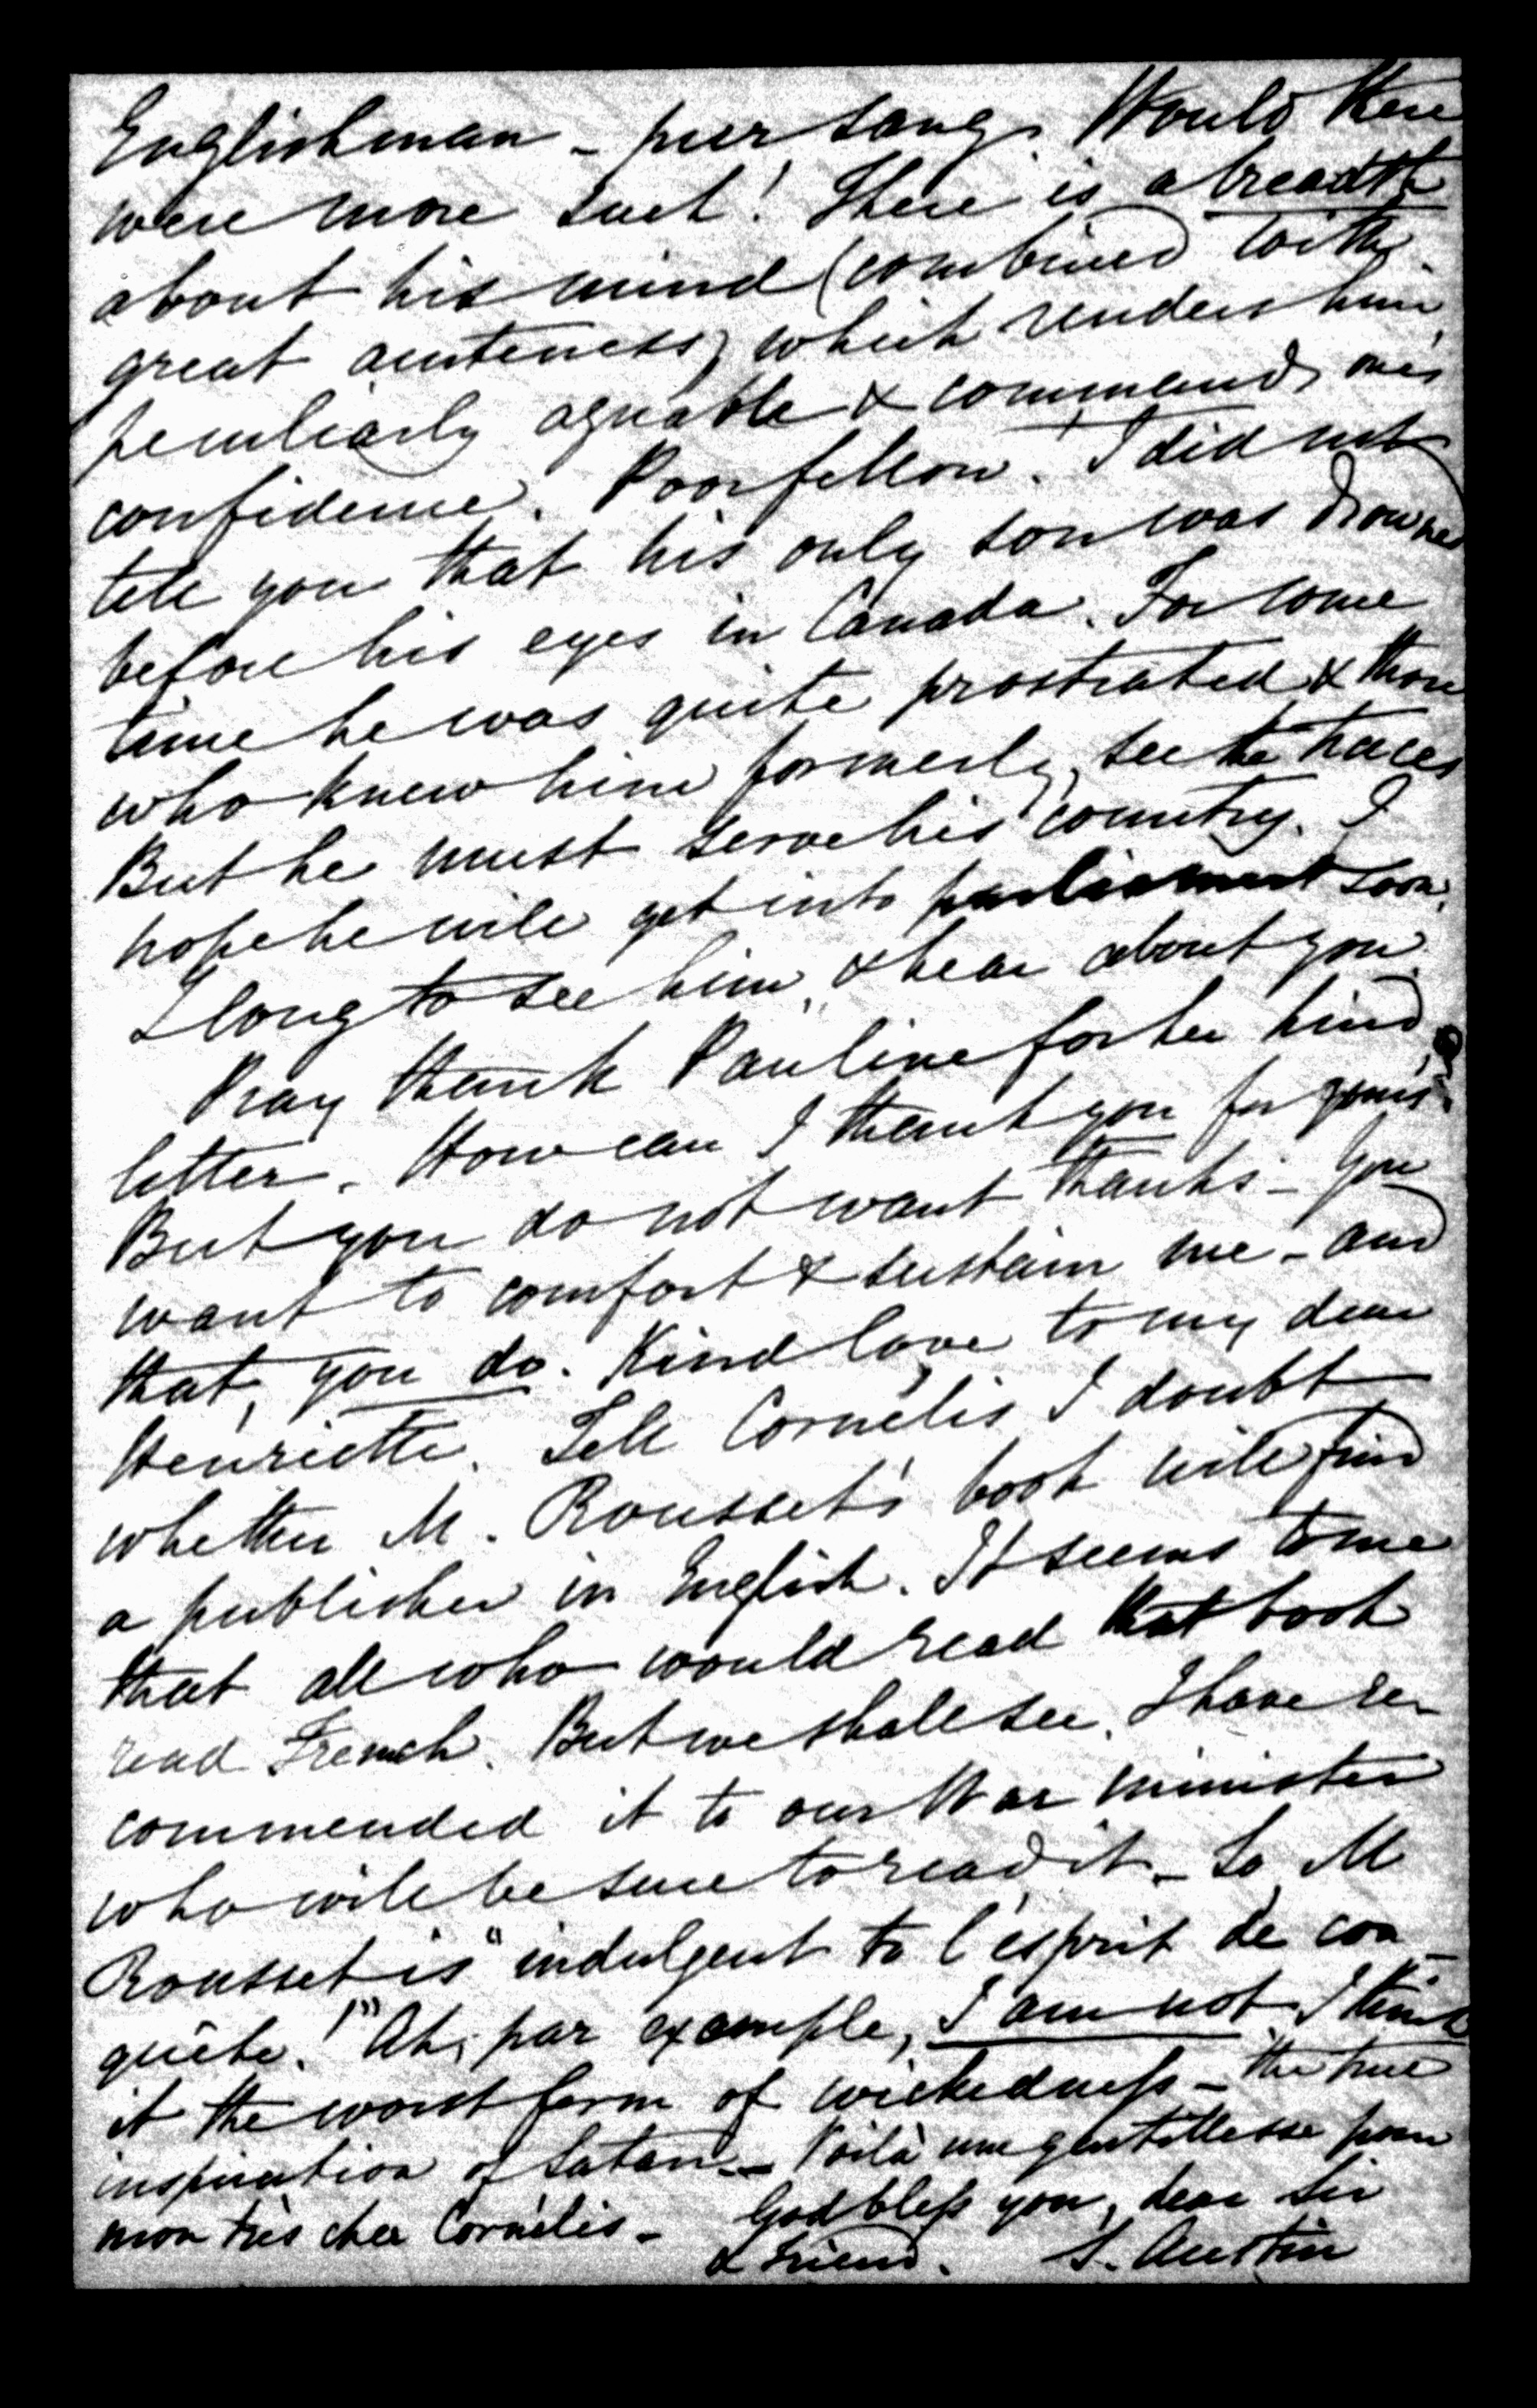 Englishman – pur sang. Would there
were more such! There is a breadth
about his mind (combined with
great acuteness) which renders him
peculiarly agreable & commands one's
confidence. Poor fellow. I did not
tell you that his only son was drowned
before his eyes in Canada. For some
time he was quite prostrated & those
who knew him formerly, see the traces
But he must serve his country. I
hope he will get into parliament soon.
I long to see him, & hear about you.
Pray thank Pauline for her kind
letter. How can I thank you for yours?
But you do not want thanks – You
want to comfort & sustain me – and
that, you do. Kind love to my dear
Henriette. Tell Cornélis I doubt
whether M. Rousset's book will find
a publisher in English. It seems to me
that all who would read that book
read French. But we shall see. I have re-
commended it to our War minister
who will be sure to read it – So M
Rousset is "indulgent to l'esprit de con-
quête!" Ah, par exemple, I am not. I think
it the worst form of wickedness – the true
inspiration of Satan. – Voilà une gentillesse pour
mon très cher Cornélis – God bless you, dear Sir
& friend. S. Austin